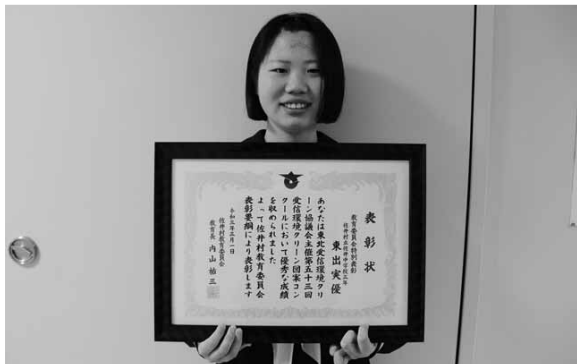 表彰状
教育委員会特別表彰
佐井村立佐井中学校三年
東出実優
あなたは東北受信環境クリ
ーン協議会主催第五十三回
受信環境クリーン図案コン
クールにおいて優秀な成績
を収められました
よって佐井村教育委員会
表彰要綱により表彰します
令和三年三月一日
佐井村教育委員会
教育長 内山祐三